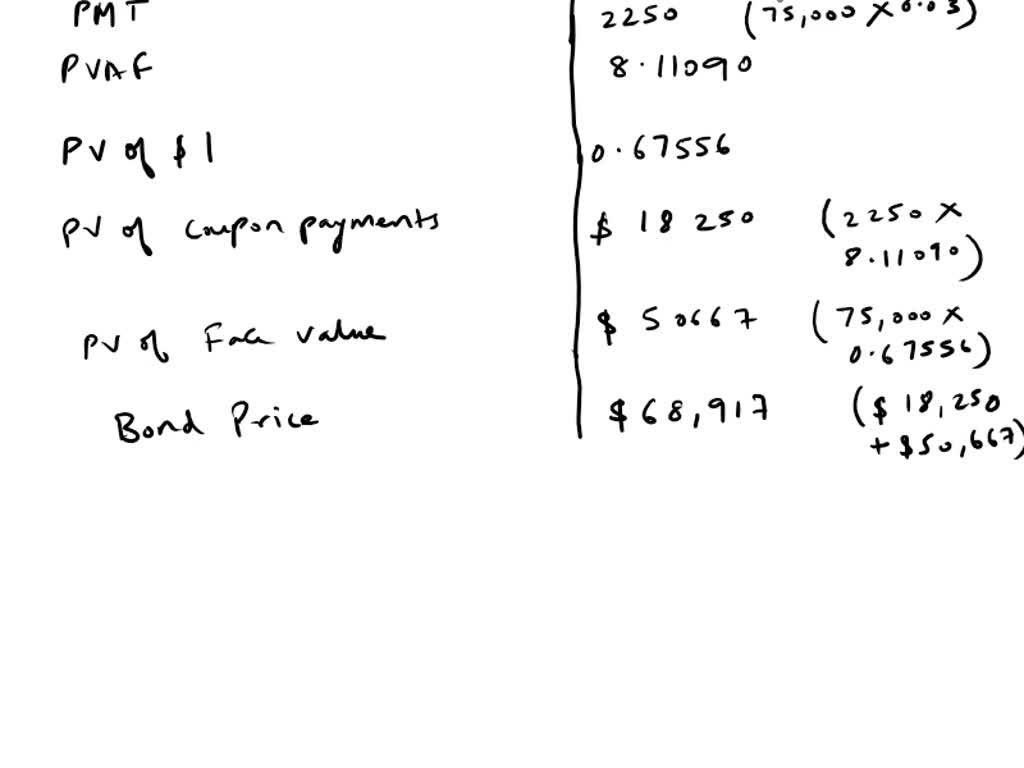 PMT 2250 (75,000 X 0.03)
PVAF 8.11090
PV of $1 0.67556
PV of coupon payments $ 18 250 (2250 X
8.11090)
PV of Face value $ 50667 (75,000 X
0.67556)
Bond Price $68,917 ($ 18,250
+ $50,667)